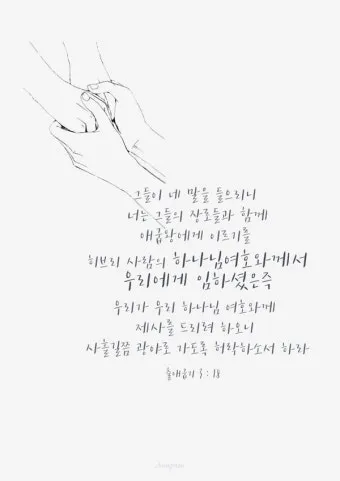 그들이 네 말을 들으리니
너는 그들의 장로들과 함께
애굽왕에게 이르기를
히브리 사람의 하나님여호와께서
우리에게 임하셨은즉
우리가 우리 하나님 여호와께
제사를 드리려 하오니
사흘길쯤 광야로 가도록 허락하소서 하라
출애굽기 3 : 18